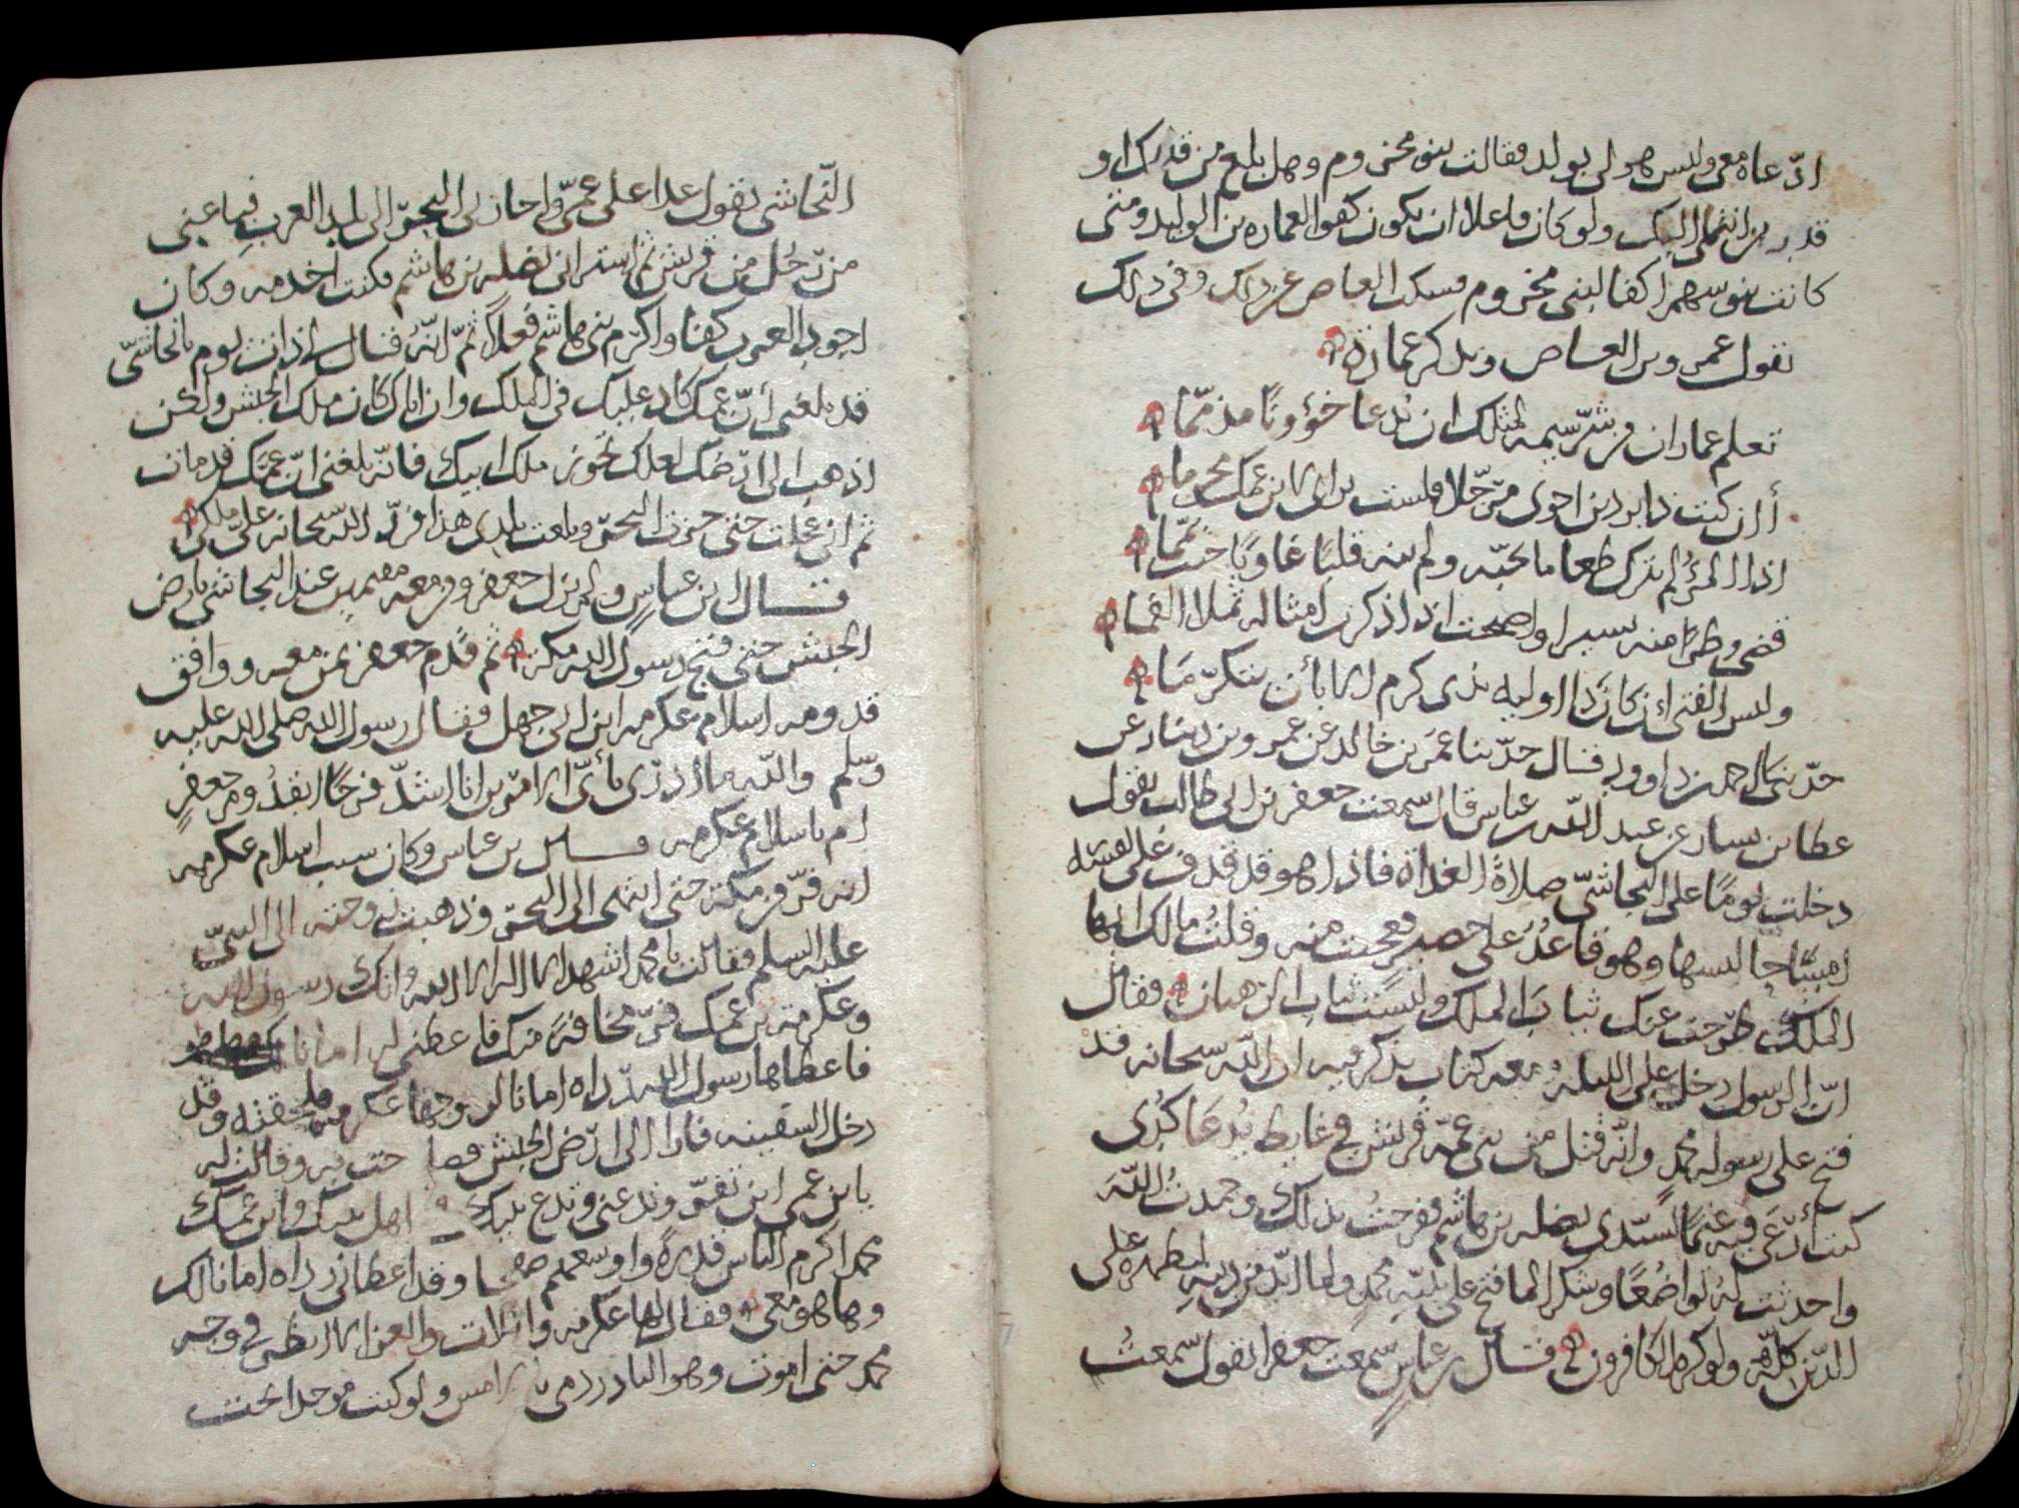 ادّعاه معى وليس هو لى بولد فقالت بنو مخزوم وهل بلغ من قدرك او
قدر من انتمى اليك ولو كان فاعلا ان يكون كفوا لعماره بن الوليد ومتى
كانت بنو سهم اكفا لبنى مخزوم فسكت العاص عن ذلك وفى ذلك
يقول عمرو بن العاص ويذكر عمارة
تعلم عمار ان من شرّ سيمه لمثلك ان يدعا خؤونًا مذممّا
أ ان كنت ذا بردين احوى مرجّلا فلست براى لابن عمك محرما
اذا المرءُ لم يترك طعاما يحبّه ولم ينه قلبًا غاويًا حيث يمّما
قضى وطرًا منه يسيرا واصبحت اذا ذكرت امثاله تملا الفما
وليس الفتى ان كان ذا اوليه بذى كرم الا بأن يتكرّمَا
حدّثنى احمد بن داوود قال حدّثنا عمَر بن خالد عن عمرو بن دينار عن
عطا بن يسار عن عبد اللّه بن عباس قال سمعت جعفر بن ابى طالب يقول
دخلت يومًا على النجاشىّ صلاةَ الغداة فاذا هو قد قذف على
جالسها وهو قاعدُ على حصير فعجبت منه وقلتُ مالك ايها
الملكُ طرحت عنك ثيابَ الملك ولبست ثياب الرهبان فقال
انّ الرسول دخل علىّ الليله ومعه كتاب يذكر فيه ان اللّه سبحانه قد
فتح على رسوله محمد وانّه قتل من بنى عمّه قريش فى غايط يُدعَا كُدى
كنت أرْعَى فيه غنمًا لسيّدى نضله بن هاشم ففرحتُ بذلك وحمدتُ اللّهَ
واحدثت له تواضُعًا وشكرا لما فتح على نبيّه محمدٍ ولما ايّد من دينه ليظهره على
الدّين كلّه ولو كره الكافرون قال بن عباسٍ سمعت جعفرا يقول سمعتُ
النّجاشى يقول عدا على عمىّ واجازنى البحرَ الى بلد العرب فباعنى
من رّجُل من قريش ثم اشترانى نضله بن هاشم فكنت اخدمه وكان
اجود العرب كفًا واكرم بنى هاشم فعلاً ثمّ انّهُ قال لى ذات يوم يا نجاشىّ
قد بلغنى أنّ عمك كاد عليك فى الملك وان اباك كان ملك الحبش ولكن
اذهب الى ارضك لعلك تحوز ملك ابيك فانّه بلغنى انّ عمّك قد مات
ثم انى عجلت حتى جزت البحرَ وبلغت بلدى هذا فردّ اللّه سبحانه علىّ ملكى
قال ابن عباسٍ ولم يزل جعفر ومن معه مقيمين عند النجاشى بارض
الحبش حتى فتح رسول اللّه مكّة ثم قدم جعفر بمن معه ووافق
قدومه اسلام عكرمه ابن ابى جهل فقال رسول اللّه صلى اللّه عليه
وسلم واللّه ما ادرى بأىّ الامرين انا اشدّ فرحًا ابقدُوم جعفرٍ
ام باسلام عكرمه قال بن عباس وكان سبب اسلام عكرمه
انه فرّ من مكّة حتى انتهى الى البحر وذهبت زوجته الى النبىّ
عليه السلم فقالت يا محمد اشهد ان لا اله الا اللّه وانك رسول اللّه
وعكرمة بن عمك فرّ مخافةً منك فاعطنى له امانا
فاعطاها رسول اللّه ردّاه امانا لزوجها عكرمه فلحقته وقد
دخل السفينه فارا الى ارض الحبش فصاحت به وقالت له
يابن عمى اين تفرّ وتدعنى وتدع بلدك و اهل بيتك وابن عمك
محمد اكرم الناس قدرةً واوسعهم صفحا وقد اعطانى رداه امانا لك
وها هو معى فقال لها عكرمه واللات والعزا لا انظر فى وجه
محمد حتى اموت وهو النادر دمى بالامس ولو كنت موحدا لكنت